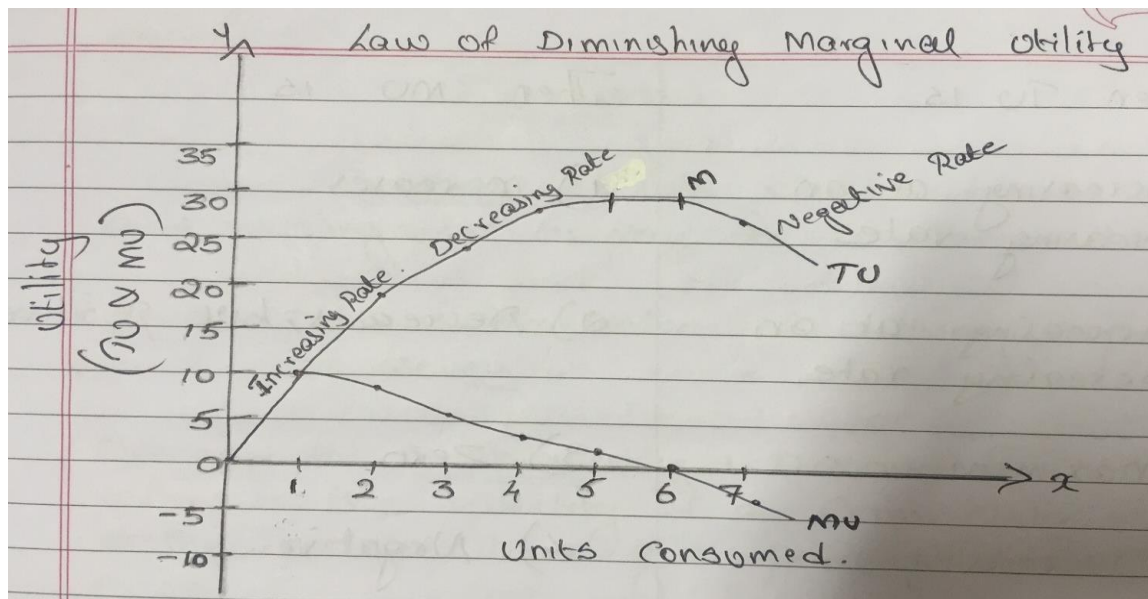 Law of Diminishing Marginal Utility
Y
35
30
25
20
15
10
5
0
-5
-10
Utility
(TU & MU)
Increasing Rate.
Decreasing Rate
M
Negative Rate
TU
1. 2 3 4 5 6 7 x
MU
Units Consumed.